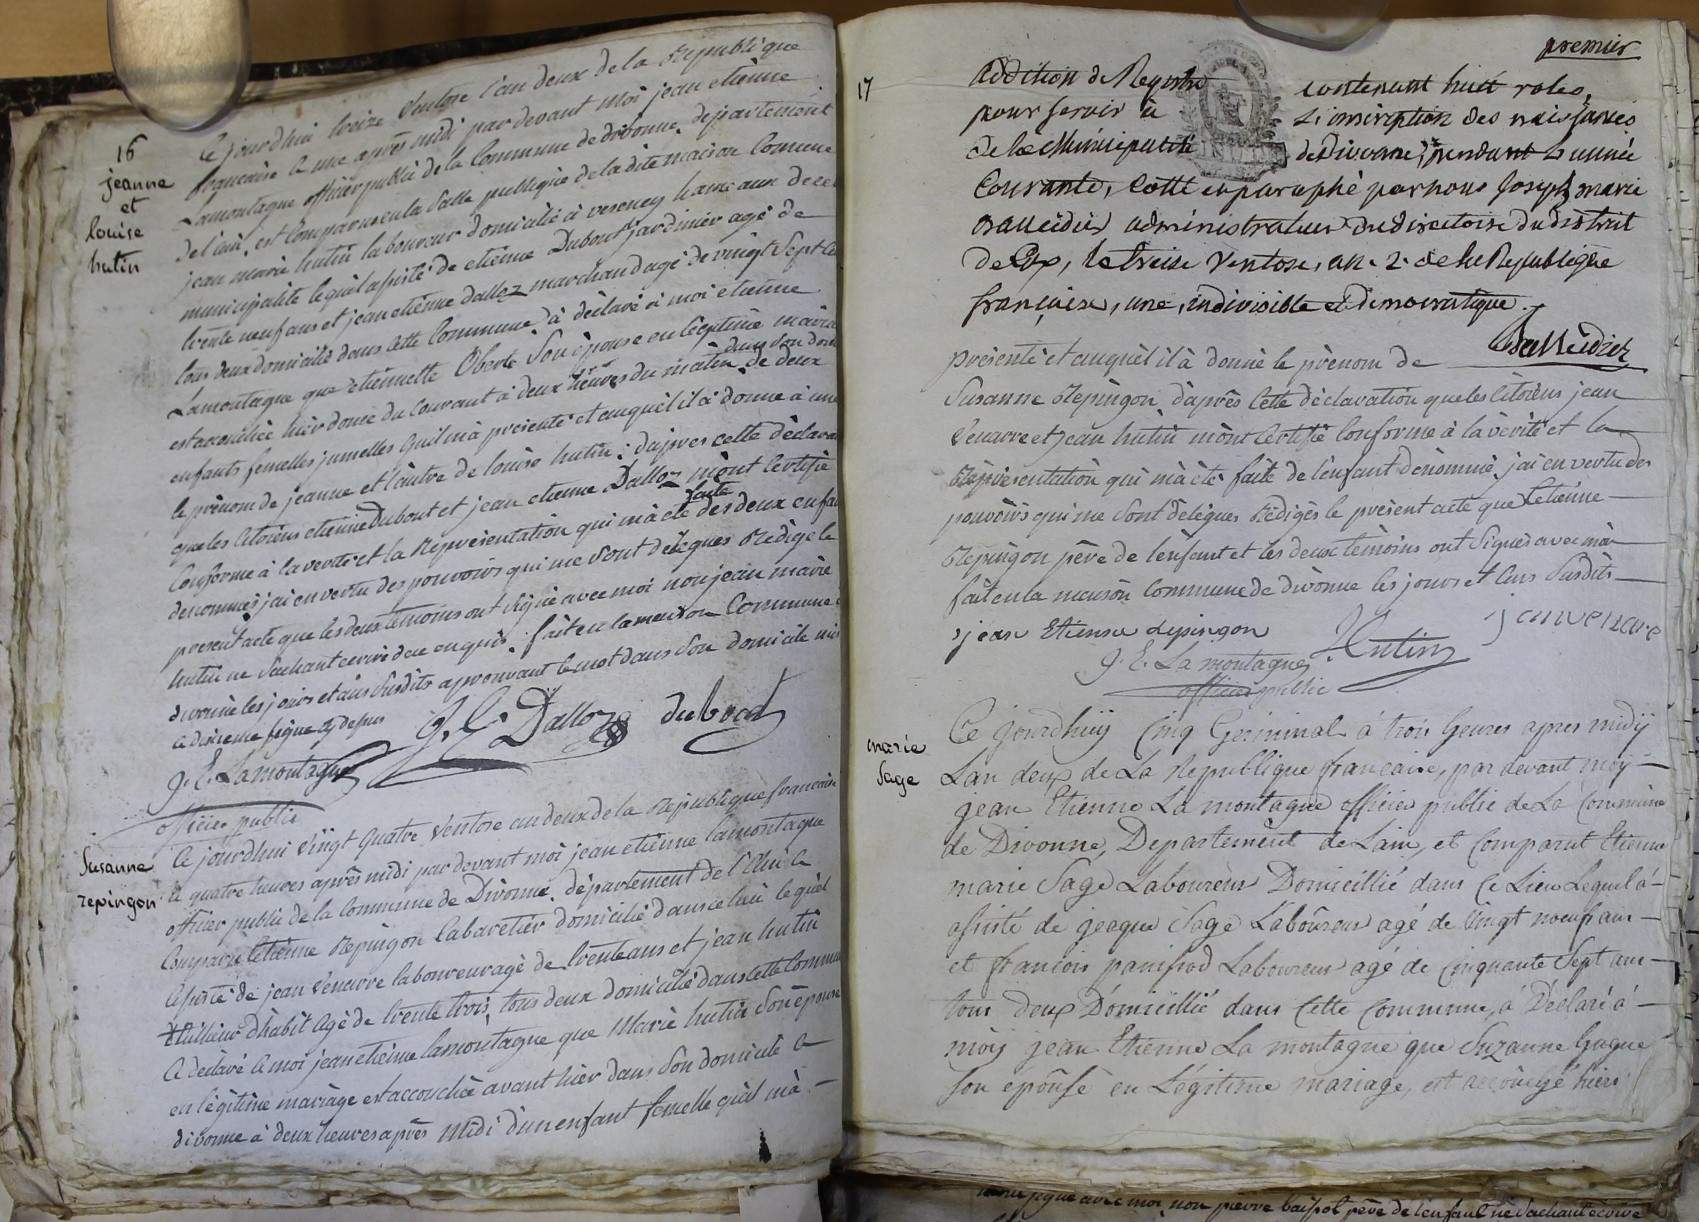 16
jeanne
et
louise
hutin
Ce jourdhui treize Ventose l'an deux de la Republique
française a une après midi par devant moi jean etienne
Lamontagne officier public de la Commune de divonne département
de l'ain, est Comparu en la Salle publique de la dite maison Comune
jean marie hutin laboureur domicilié à veseney hameaux de cette
municipalité lequel assisté de etienne Dubout jardinier agé de
trente neuf ans et jean etienne dalloz marchand agé de vingt Sept
tous deux domicilié dans cette Commune à déclaré à moi etienne
Lamontagne que etiennette Oberte Son épouse en légitime mariage
dans Son dom
est accouchée hier douze du Courant à deux heures du matin de deux
enfants femelles jumelles quil m'à présenté et auquel il à donné à une
le prénom de jeanne et l'autre de louise hutin; dapres cette déclara
que les Citoiens etienne Dubout et jean etienne Dalloz m'ont certifié
faite
Conforme à la verité et la Représentation qui m'à eté des deux enfa
denommés j'ai en vertu des pouvoirs qui me Sont délegues Rédigé le
present acte que les deux temoins ont Signé avec moi non jean marie
hutin ne Sachant ecrire de ce enquis. fait en la maison Commune
divonne les jours et ans Susdits aprouvant le mot dans Son domicile mis
a dixieme ligne cy depus
J. E. Dalloz dubout
J. E. Lamontagne
officier public
Susanne
repingon
Ce jourdhui vingt quatre Ventose an deux de la Republique francaise
à quatre heures après midi par devant moi jean etienne lamontagne
officier public de la Commune de Divonne département de l'Ain a
Comparu letienne Repingon Cabaretier domicilié dans ce lieu lequel
assisté de jean Venarre laboureur agé de trente ans et jean hutin
tailleur d'habit Agé de trente trois, tous deux domicilié dans cette Commune
a déclaré a moi jean etienne lamontagne que Marie hutin Son épouse
en légitime mariage est accouchée avant hier dans Son domicile a
divonne à deux heures après midi d'un enfant femelle quil m'à
premier
17
addition de Registre contenant huit roles,
pour servir à L'inscription des naissances
de la Municipalité de Divonne, pendant L'année
Courante, Cotté et paraphé par nous Joseph marie
balleidier administrateur du directoire du district
de Gex, le treize Ventose, an 2e. de la Republique
française, une, indivisible et démocratique.
Balleidier
présenté et auquel il à donné le prénom de
Susanne Repingon d'après Cette déclaration que les Citoiens jean
Venarre et jean hutin m'ont Certifié Conforme à la vérité et la
Représentation qui m'à été faite de l'enfant dénommé, j'ai en vertu des
pouvoirs qui me Sont délégues Rédigés le présent acte que Letienne
Repingon père de l'enfant et les deux témoins ont Signés avec moi
fait en la maison Commune de divonne les jours et Ans Susdits
jean Etienne repingon J. Hutin jean venare
J. E. La montagne
officier public
marie
Sage
Ce jourdhuij Cinq Germinal à trois heures apres midij
Lan deux de La Republique francaise, par devant moij
jean Etienne La montagne officier public de La Commune
de Divonne, Departement de Lain, et Comparut Etienne
marie Sage Laboureur Domicillié dans ce Lieu Lequel á
assisté de jeaque Sage Laboureur agé de Vingt noeuf ans
et francois panissod Laboureur agé de Cinquante Sept ans
tous deux Domicillié dans Cette Commune, á Déclaré á
moij jean Etienne La montagne que Suzanne Gugue
Son epouse en Légitime mariage, est accouché hier
avec moi non pierre baipol père de l'enfant ne Sachant ecrire